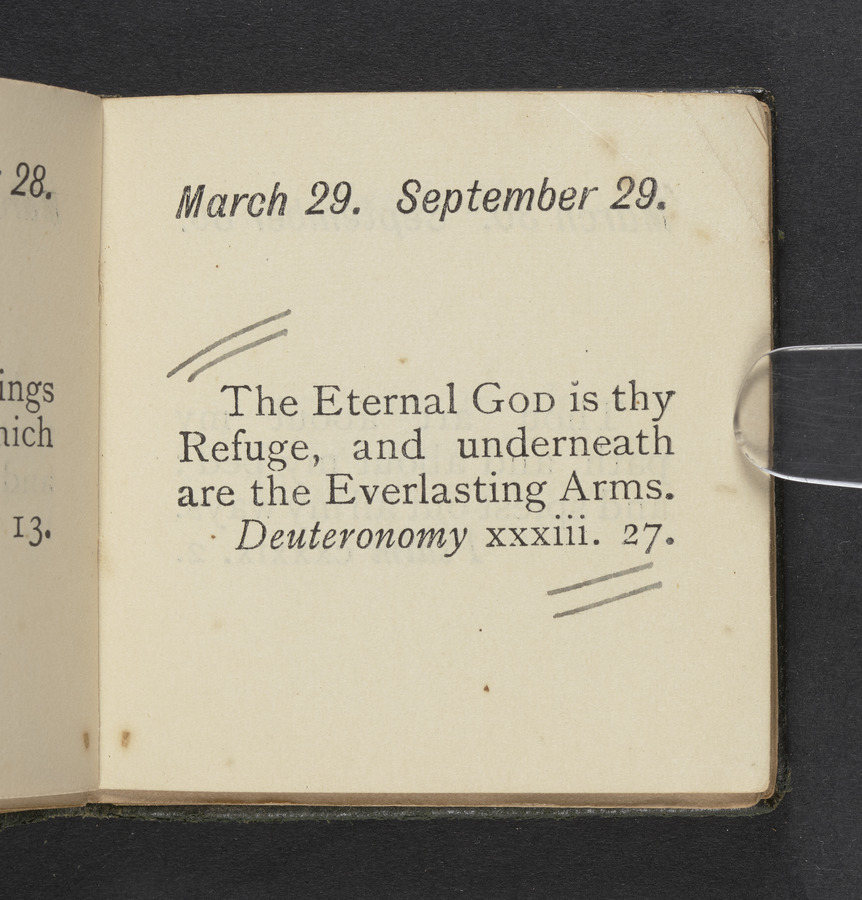 28.
ings
hich
13.
March 29. September 29.
The Eternal GOD is thy
Refuge, and underneath
are the Everlasting Arms.
Deuteronomy xxxiii. 27.